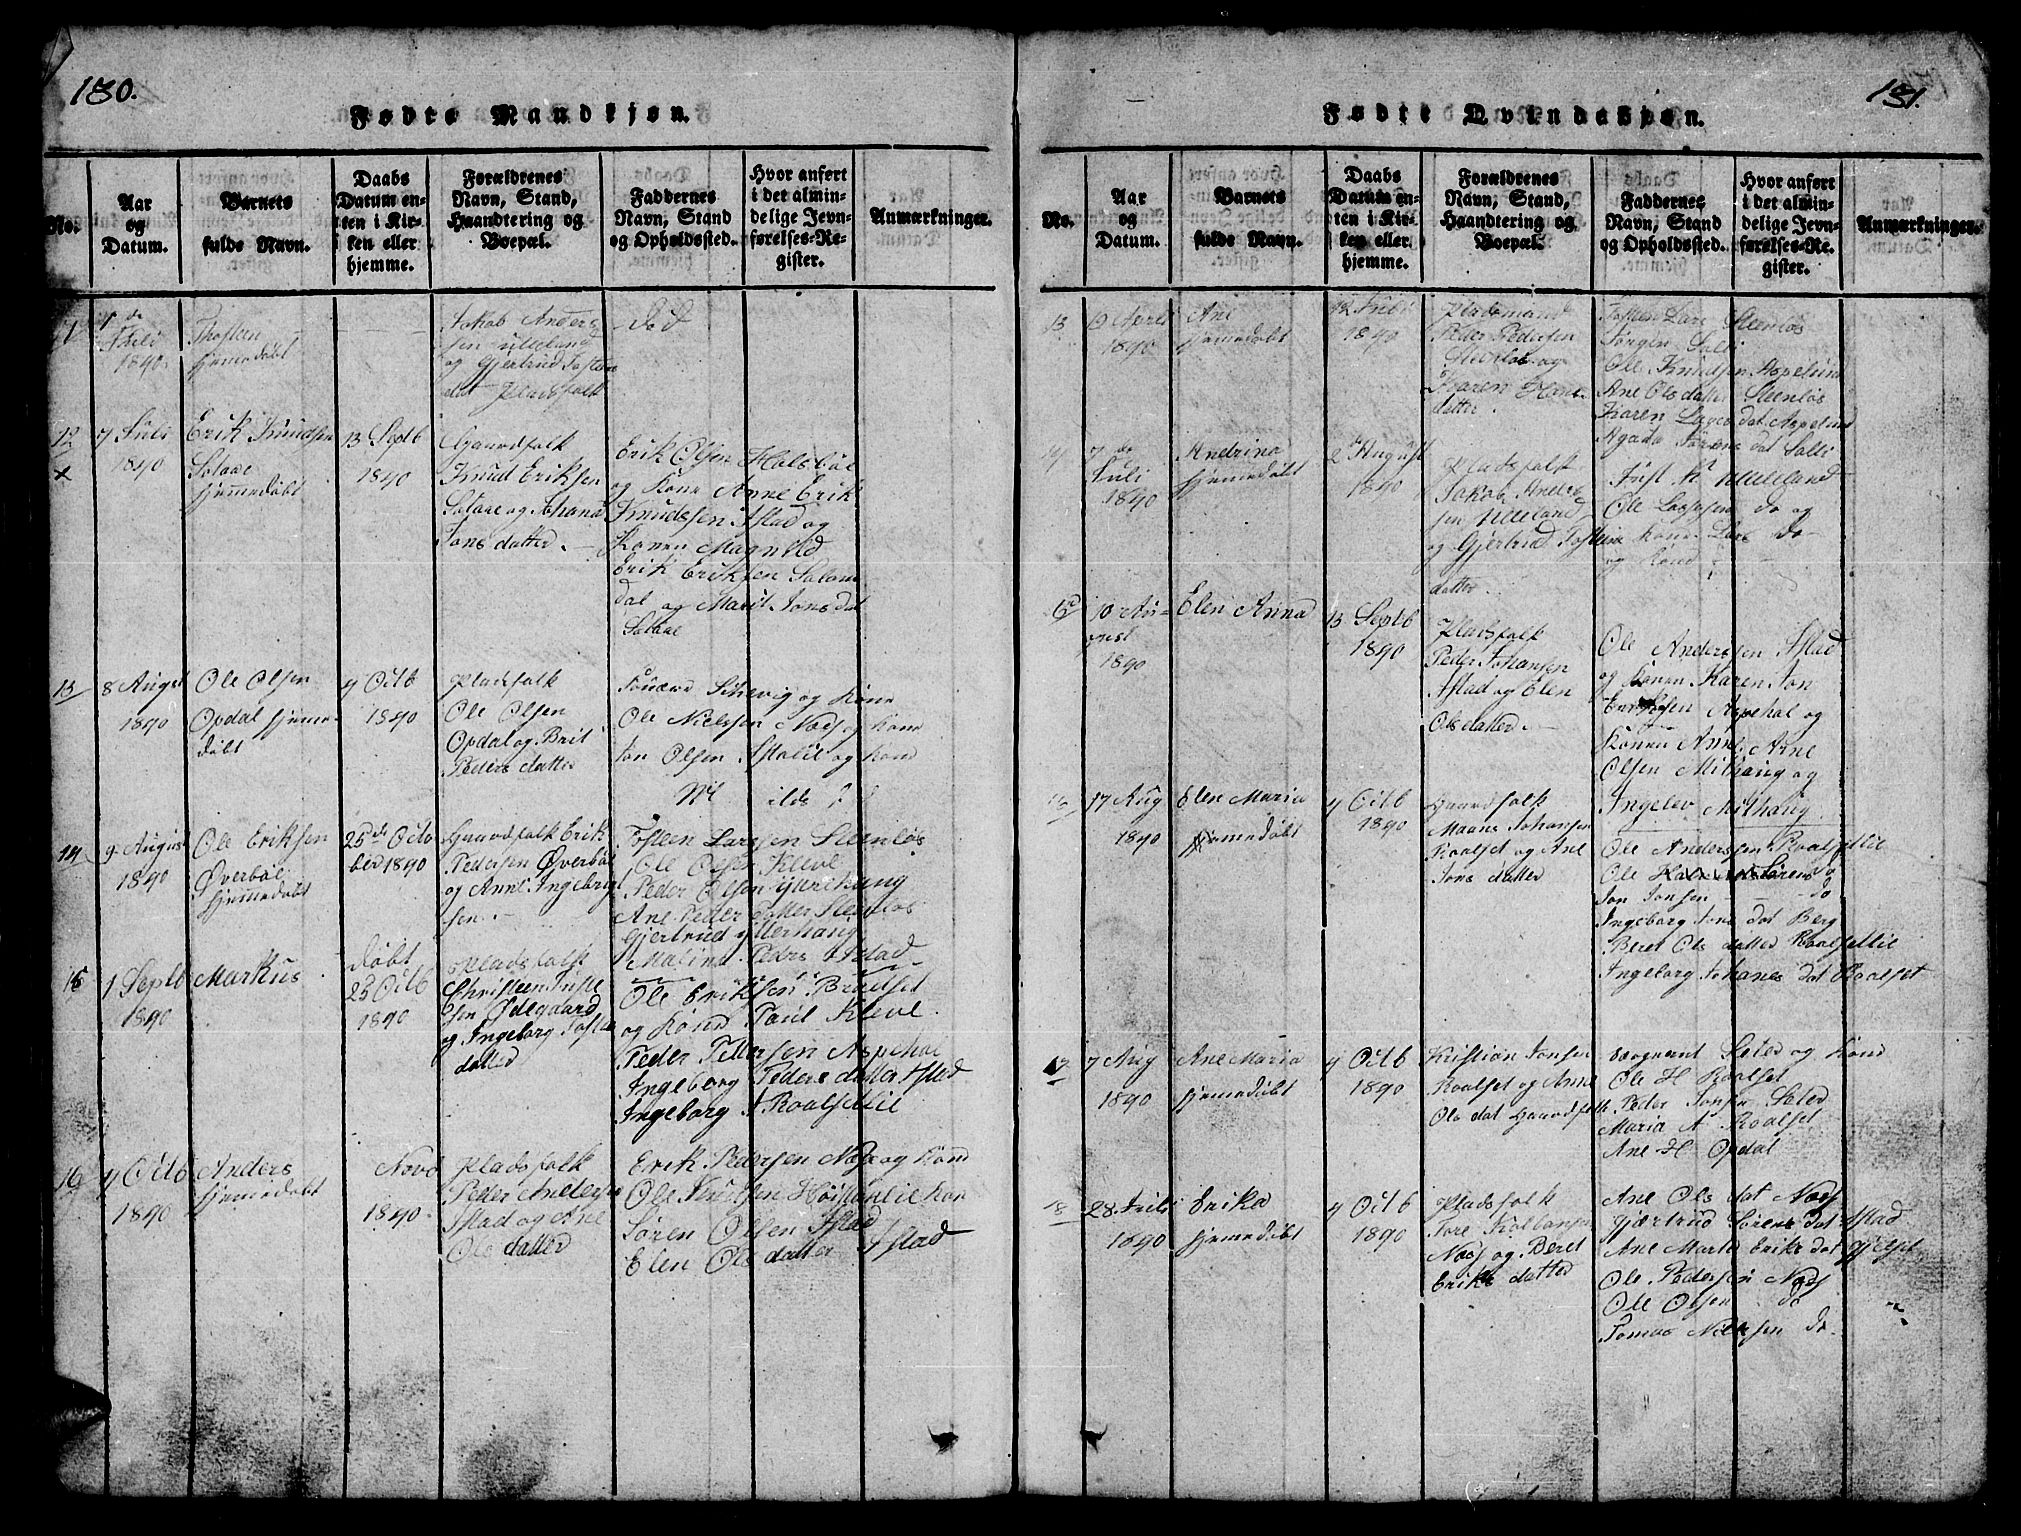 130.
Fødte Mandkjøn.
No.
Aar
og
Datum.
Barnets
fulde Navn.
Daabs
Datum en-
ten i Kir-
ken eller
hjemme.
Forældrenes
Navn, Stand,
Haandtering og
Boepæl.
Faddernes
Navn, Stand
og Opholdssted.
Hvor anført
i det almin-
delige Jevn-
førelses-Re-
gister.
Anmærkninger.
1 de
Juli
1890
Thosteen
hjemedøbt
Jakob Anders
sen Ulleland
og Gjertrud Tosten
dat Pladsfolk
død
7 Juli
1890
Erik Knudsen
Solaae
hjemmedøbt
13 Septb
1890
Gaardfolk
Knud Eriksen
Solaae og Johana
Jons datter
Erik Olsen Holsbøe
og Kone Anne Erik
Knudssen Astad og
Konen Magnild
Erik Eriksen Solem
dal og Marit Jons dat
Solaae
13
8 August
1890
Ole Olsen
Opdal hjeme
døbt
4 Octb
1890
Pladsfolk
Ole Olsen
Opdal og Brit
Peders datter
Schevig og Kone
Ole Nielssen Næs og Kone
Jon Olsen Astalie og Kone
14
9 August
1890
Ole Eriksen
Øverbøe
hjemmedøbt
25de Octo
ber 1890
Gaardfolk Erik
Pedersen Øverbøe
og Anne Ingebrigt
sen
Tosteen Larssen Steenløs
Ole Olsen Kleve
Peder Olsen Ytterhaug
Ane Peder datter Steenløs
Gjertrud Ytterhaug
Malina Peders Astad
15
1 Septb
1890
Markus
døbt
25 Octb
1890
Pladsfolk
Christeen Juste
sen Ødegaard
og Ingeborg Tosten
datter
Ole Eriksen Bredset
og Kone Paul Kleve
Peder Pettersen Aspehal
Ingeborg Peders datter Astad
Ingeborg A Roalsetlie
16
4 Octb
1890
Anders
hjemedøbt
Novb
1890
Pladsfolk
Petter Anderse
Astad og Ane
Ols datter
Erik Pedersen Næs og Kone
Ole Knudsen Høistenlie Kon
Søren Olsen Astad
Elen Ols datter Astad
131.
Fødte Qvindekjøn.
No.
Aar
og
Datum.
Barnets
fulde Navn.
Daabs
Datum en-
ten i Kir-
ken eller
hjemme.
Forældrenes
Navn, Stand,
Haandtering og
Boepæl.
Faddernes
Navn, Stand
og Opholdssted.
Hvor anført
i det almin-
delige Jevn-
førelses-Re-
gister.
Anmærkninger.
13
April
1890
Ane
hjemedøbt
12 Juli
1890
Pladsmand
Peder Pedersen
Steenløs og
Karen Hans
datter
Tosten Lars Steenløs
Jørgen Solli
Ole Knudsen Aspelund
Ane Ols datter Steenløs
Karen Lars dat Aspelund
Agata Jørens dat Solli
14
7 de
Juli
1890
Andrina
hjemedøbt
2 August
1890
Pladsfolk
Jakob Anders
sen Ulleland
og Gjertrud Tosten
datter
Just K Ulleland
Ole Larssen do og
Kone Lars do
og Kone
10 Au-
gust
1890
Elen Anna
13 Septb
1890
Pladsfolk
Peder Johansen
Astad og Elen
Ols datter
Ole Anderssen Astad
og Konen Karen Jon
Eriksen Aspehal og
Konen Anne Arne
Olsen Mithaug og
Ingelev Mithaug
16
17 Aug
1890
Elen Maria
hjemedøbt
4 Octb
1890
Gaardfolk
Maans Johansen
Roalset og Ane
Jons datter
Ole Anderssen Roalsetlie
Jon Jonsen do
Ingeborg Jons dat Berg
Beret Ols datter Roalsetlie
Ingeborg Johanes dat Roalset
17
7 Aug
1890
Ane Maria
hjemedøbt
4 Octb
1890
Kristian Jonsen
Roalset og Anne
Ols dat Gaardfolk
Sergeant Seter og Kone
Ole H Roalset
Peder Jonsen Seter
Maria A Roalset
Ane H Opdal
18
28 Juli
1890
Erika
hjemedøbt
4 Octb
1890
Pladsfolk
Tore Kolbansen
Næs og Beret
Eriks datter
Ane Ols dat Næs
Gjærtrud Sørens dat Astad
Ane Marta Eriks dat Gjelset
Ole Pedersen Næs
Ole Olsen do
Tomas Nilssen do